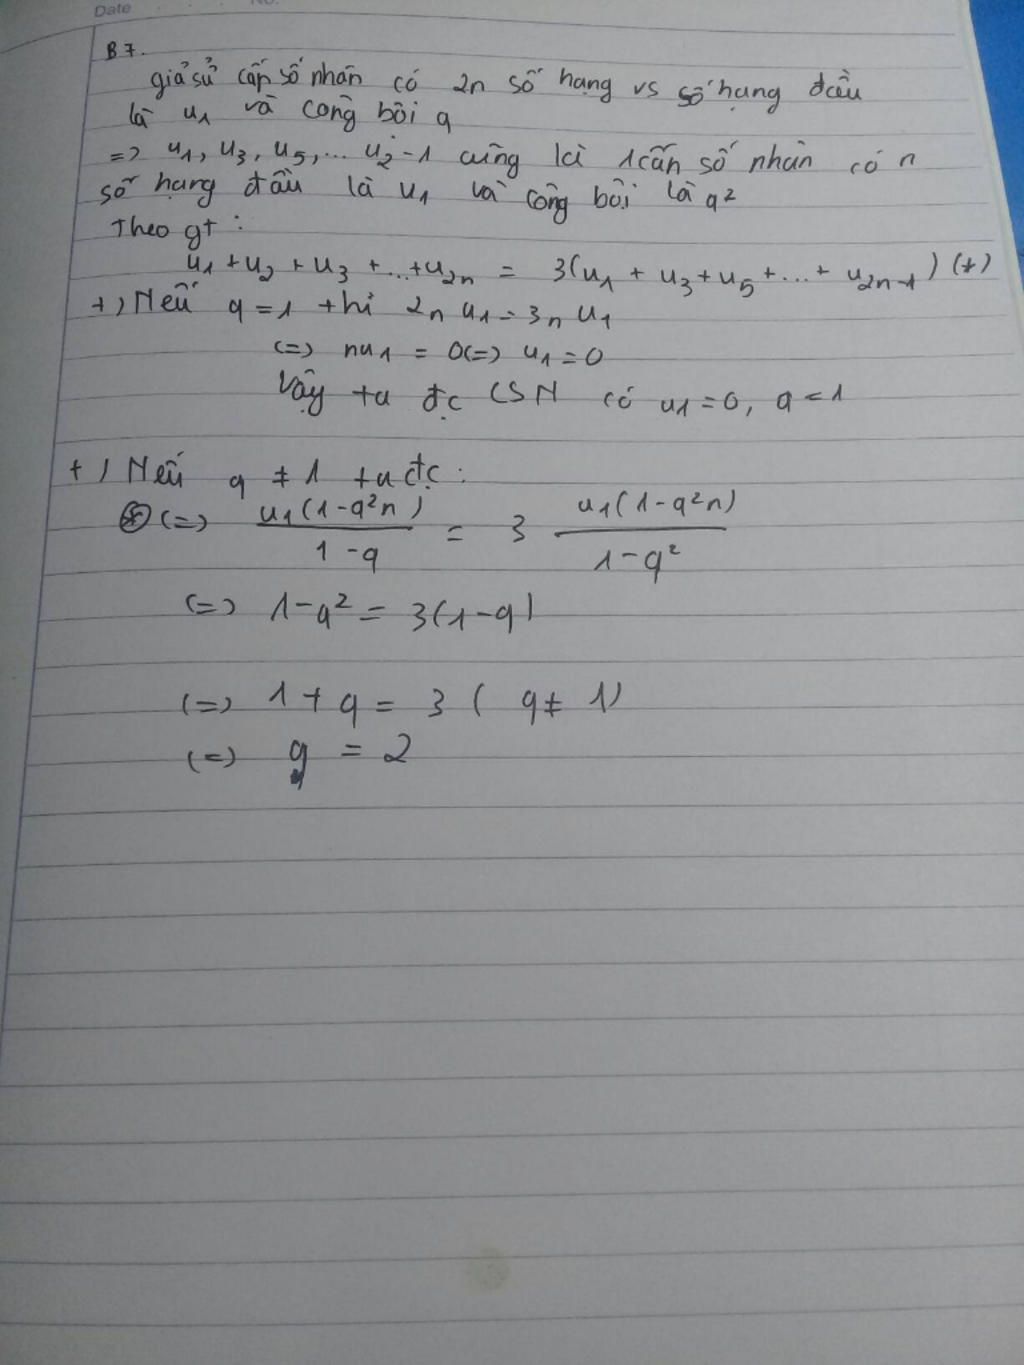 Date No.
B7.
giả sử cấp số nhân có 2n số hạng vs số hạng đầu
là u₁ và công bội q
=> u₁, u₃, u₅, ... u₂-1 cũng là 1 cấp số nhân có n
số hạng đầu là u₁ và công bội là q²
Theo gt :
u₁ + u₂ + u₃ + ... + u₂ₙ = 3(u₁ + u₃ + u₅ + ... + u₂ₙ₋₁) (*)
+) Nếu q = 1 thì 2n u₁ = 3n u₁
(=) nu₁ = 0 (=) u₁ = 0
Vậy ta đc CSN có u₁ = 0, q = 1
+) Nếu q ≠ 1 ta đc :
(*) (=) u₁(1-q²n) / 1-q = 3 u₁(1-q²n) / 1-q²
(=) 1-q² = 3(1-q)
(=) 1+q = 3 ( q ≠ 1)
(=) q = 2